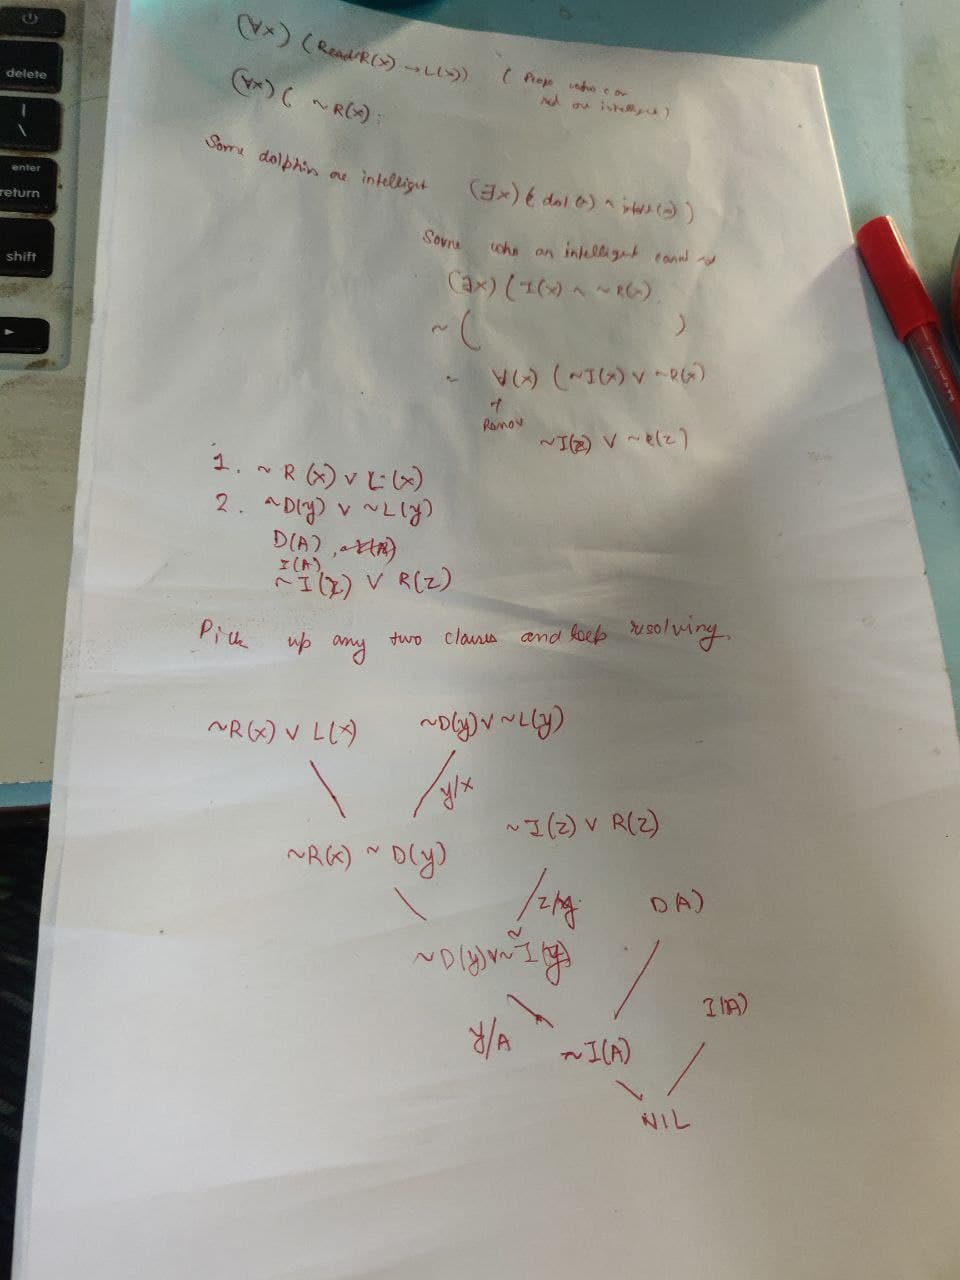 delete
|
\
enter
return
shift
(∀x) (Read R(x) → L(x)) ( Peop who can
red are intelligent)
(∀x) ( ~R(x) :
Some dolphins are intelligent (∃x) ( dol(x) ^ intell(x) )
Some who are intelligent cannot
(∃x) ( I(x) ^ ~R(x)
~ ( )
~ ∀(x) ( ~I(x) ∨ ~R(x)
Remov
~I(z) ∨ ~R(z)
1. ~R(x) ∨ L(x)
2. ~D(y) ∨ ~L(y)
D(A),
I(A)
~I(z) ∨ R(z)
Pick up any two clauses and keep resolving.
~R(x) ∨ L(x) ~D(y) ∨ ~L(y)
y/x
~I(z) ∨ R(z)
~R(x) ~ D(y)
z/y D(A)
~D(y) ∨ ~I(y)
I(A)
y/A ~I(A)
NIL